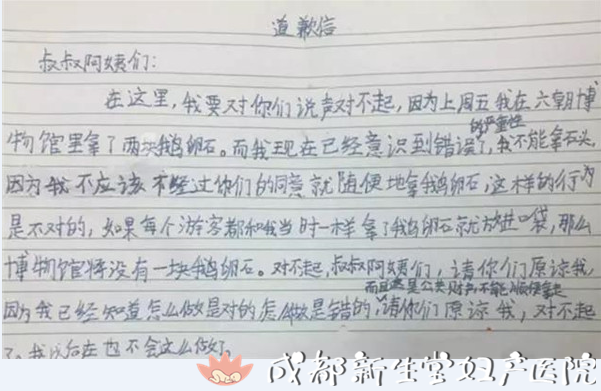 道歉信
叔叔阿姨们:
在这里,我要对你们说声对不起,因为上周五我在六朝博
物馆里拿了两块鹅卵石。而我现在已经意识到错误的严重性了,我不能拿石头,
因为我不应该不经过你们的同意就随便地拿鹅卵石,这样的行为
是不对的,如果每个游客都和我当时一样拿了鹅卵石就放进口袋,那么
博物馆将没有一块鹅卵石。对不起,叔叔阿姨们,请你们原谅我,
因为我已经知道怎么做是对的怎么做是错的,而且这是公共财产不能随便拿走
请你们原谅我,对不起
了。我以后在也不会这么做了。
成都新生堂妇产医院